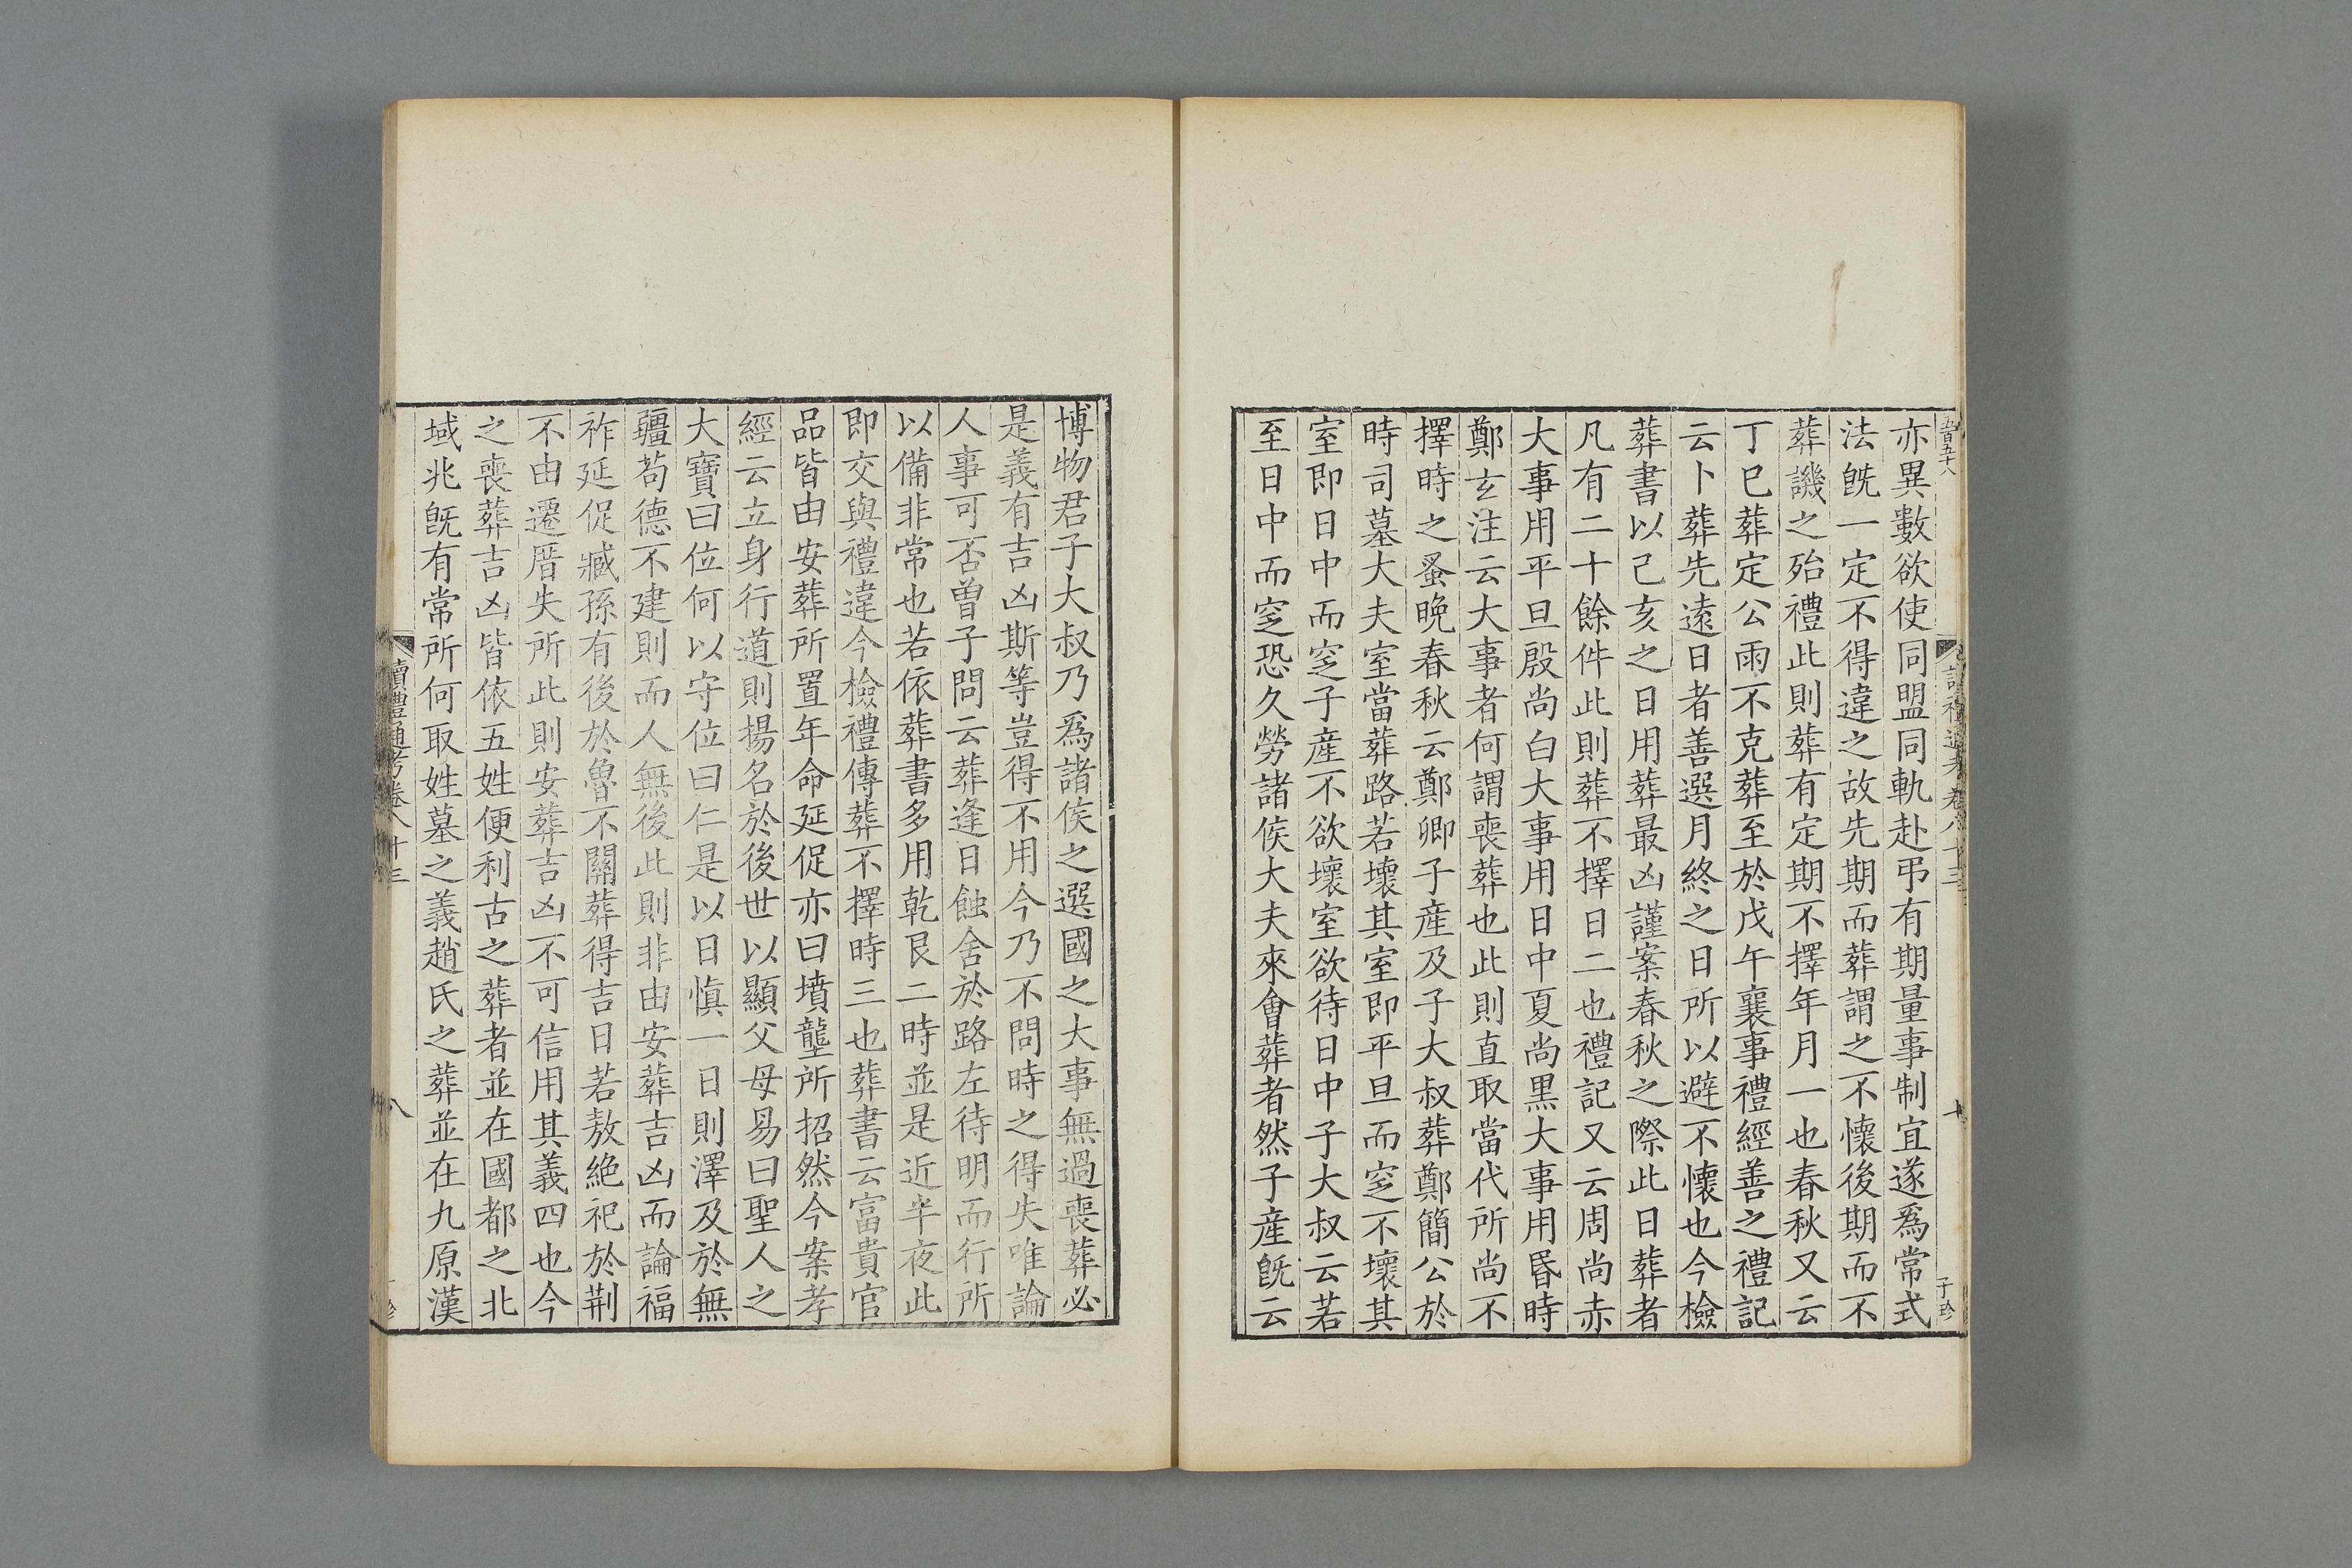 亦異數欲使同盟同軌赴弔有期量事制宜遂爲常式
法旣一定不得違之故先期而葬謂之不懷後期而不
葬譏之殆禮此則葬有定期不擇年月一也春秋又云
丁巳葬定公雨不克葬至於戊午襄事禮經善之禮記
云卜葬先遠日者善選月終之日所以避不懷也今檢
葬書以己亥之日用葬最凶謹案春秋之際此日葬者
凡有二十餘件此則葬不擇日二也禮記又云周尚赤
大事用平旦殷尚白大事用日中夏尚黑大事用昬時
鄭玄注云大事者何謂喪葬也此則直取當代所尚不
擇時之蚤晚春秋云鄭卿子産及子大叔葬鄭簡公於
時司墓大夫室當葬路若壞其室即平旦而窆不壞其
室即日中而窆子産不欲壞室欲待日中子大叔云若
至日中而窆恐久勞諸侯大夫來會葬者然子産旣云
博物君子大叔乃爲諸侯之選國之大事無過喪葬必
是義有吉凶斯等豈得不用今乃不問時之得失唯論
人事可否曾子問云葬逢日蝕舍於路左待明而行所
以備非常也若依葬書多用乾艮二時並是近半夜此
即交與禮違今檢禮傳葬不擇時三也葬書云富貴官
品皆由安葬所置年命延促亦曰墳壟所招然今案孝
經云立身行道則揚名於後世以顯父母易曰聖人之
大寶曰位何以守位曰仁是以日慎一日則澤及於無
疆茍德不建則而人無後此則非由安葬吉凶而論福
祚延促臧孫有後於魯不關葬得吉日若敖絶祀於荆
不由遷厝失所此則安葬吉凶不可信用其義四也今
之喪葬吉凶皆依五姓便利古之葬者並在國都之北
域兆旣有常所何取姓墓之義趙氏之葬並在九原漢
讀禮通考卷八十三
八